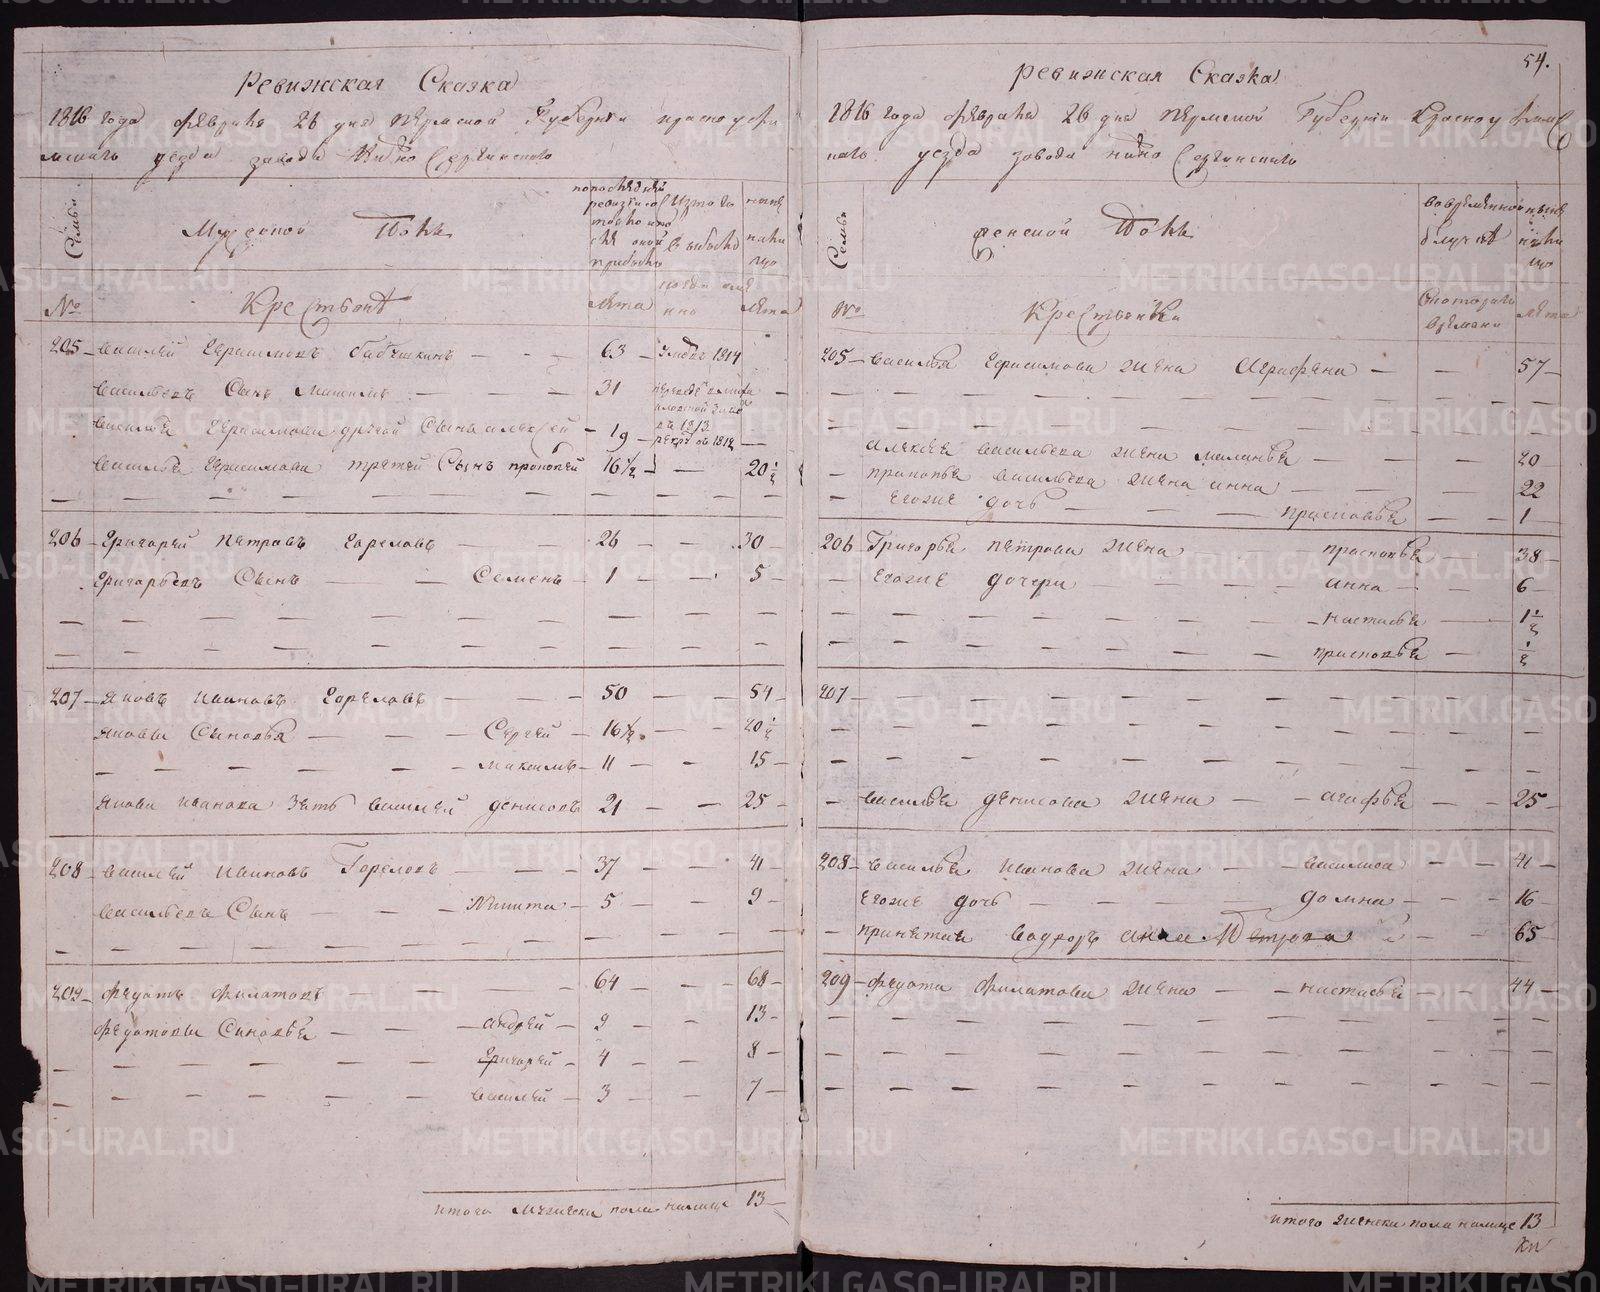 Ревижская Сказка
1816 года февраля 26 дня пермской Губернии красноуфи
мскаго уезда завода Нижно Сергинскаго
Семьи
Мужеской Полъ
попоследней ревизiи состояло и после оной прибыло
Изтого Выбыло
ныне налицо
№
Крестьяне
лета
когда имянно
лета
205 Василей Герасимовъ Бабушкинъ 63 умеръ 1814
Васильевъ Сынъ Максимъ 31
Василья Герасимова другой Сынъ алексей 19 рекру ой 1812
Василья Герасимова третей Сынъ прокопей 16½ 20½
206 Григорей Петровъ Гореловъ 26 30
Григорьевъ Сынъ Семенъ 1 5
207 Яковъ Ивановъ Гореловъ 50 54
Яковы Сыновья Сергей 16½ 20½
Максимъ 11 15
Якова Иванова Зять Василей денисовъ 21 25
208 Василей Ивановъ Гореловъ 37 41
Васильевъ Сынъ Никита 5 9
209 Федотъ Филатовъ 64 68
Федотовы Сыновья андрей 9 13
Григорей 4 8
Василей 3 7
итого мужеска пола налице 13
54.
ревижская Сказка
1816 года февраля 26 дня пермской Губернiи Красноуфимс
каго уезда завода нижно Сергинскаго
Семьи
женской Полъ
вовременной отлучке
ныне налицо
№
Крестьянки
Скотораго времени
лета
205 Василья Герасимова жена Аграфена 57
алексея Васильева жена маланья 20
прокопья Васильева жена анна 22
Егоже дочь прасковья 1
206 Григорья петрова жена прасковья 38
Егоже дочери анна 6
настасья 1½
прасковья ½
207
Василья денисова жена агафья 25
208 Василья иванова жена василиса 41
Егоже дочь домна 16
принятая анна Петрова 65
209 федота филатова жена настасья 44
итого женска пола налице 13